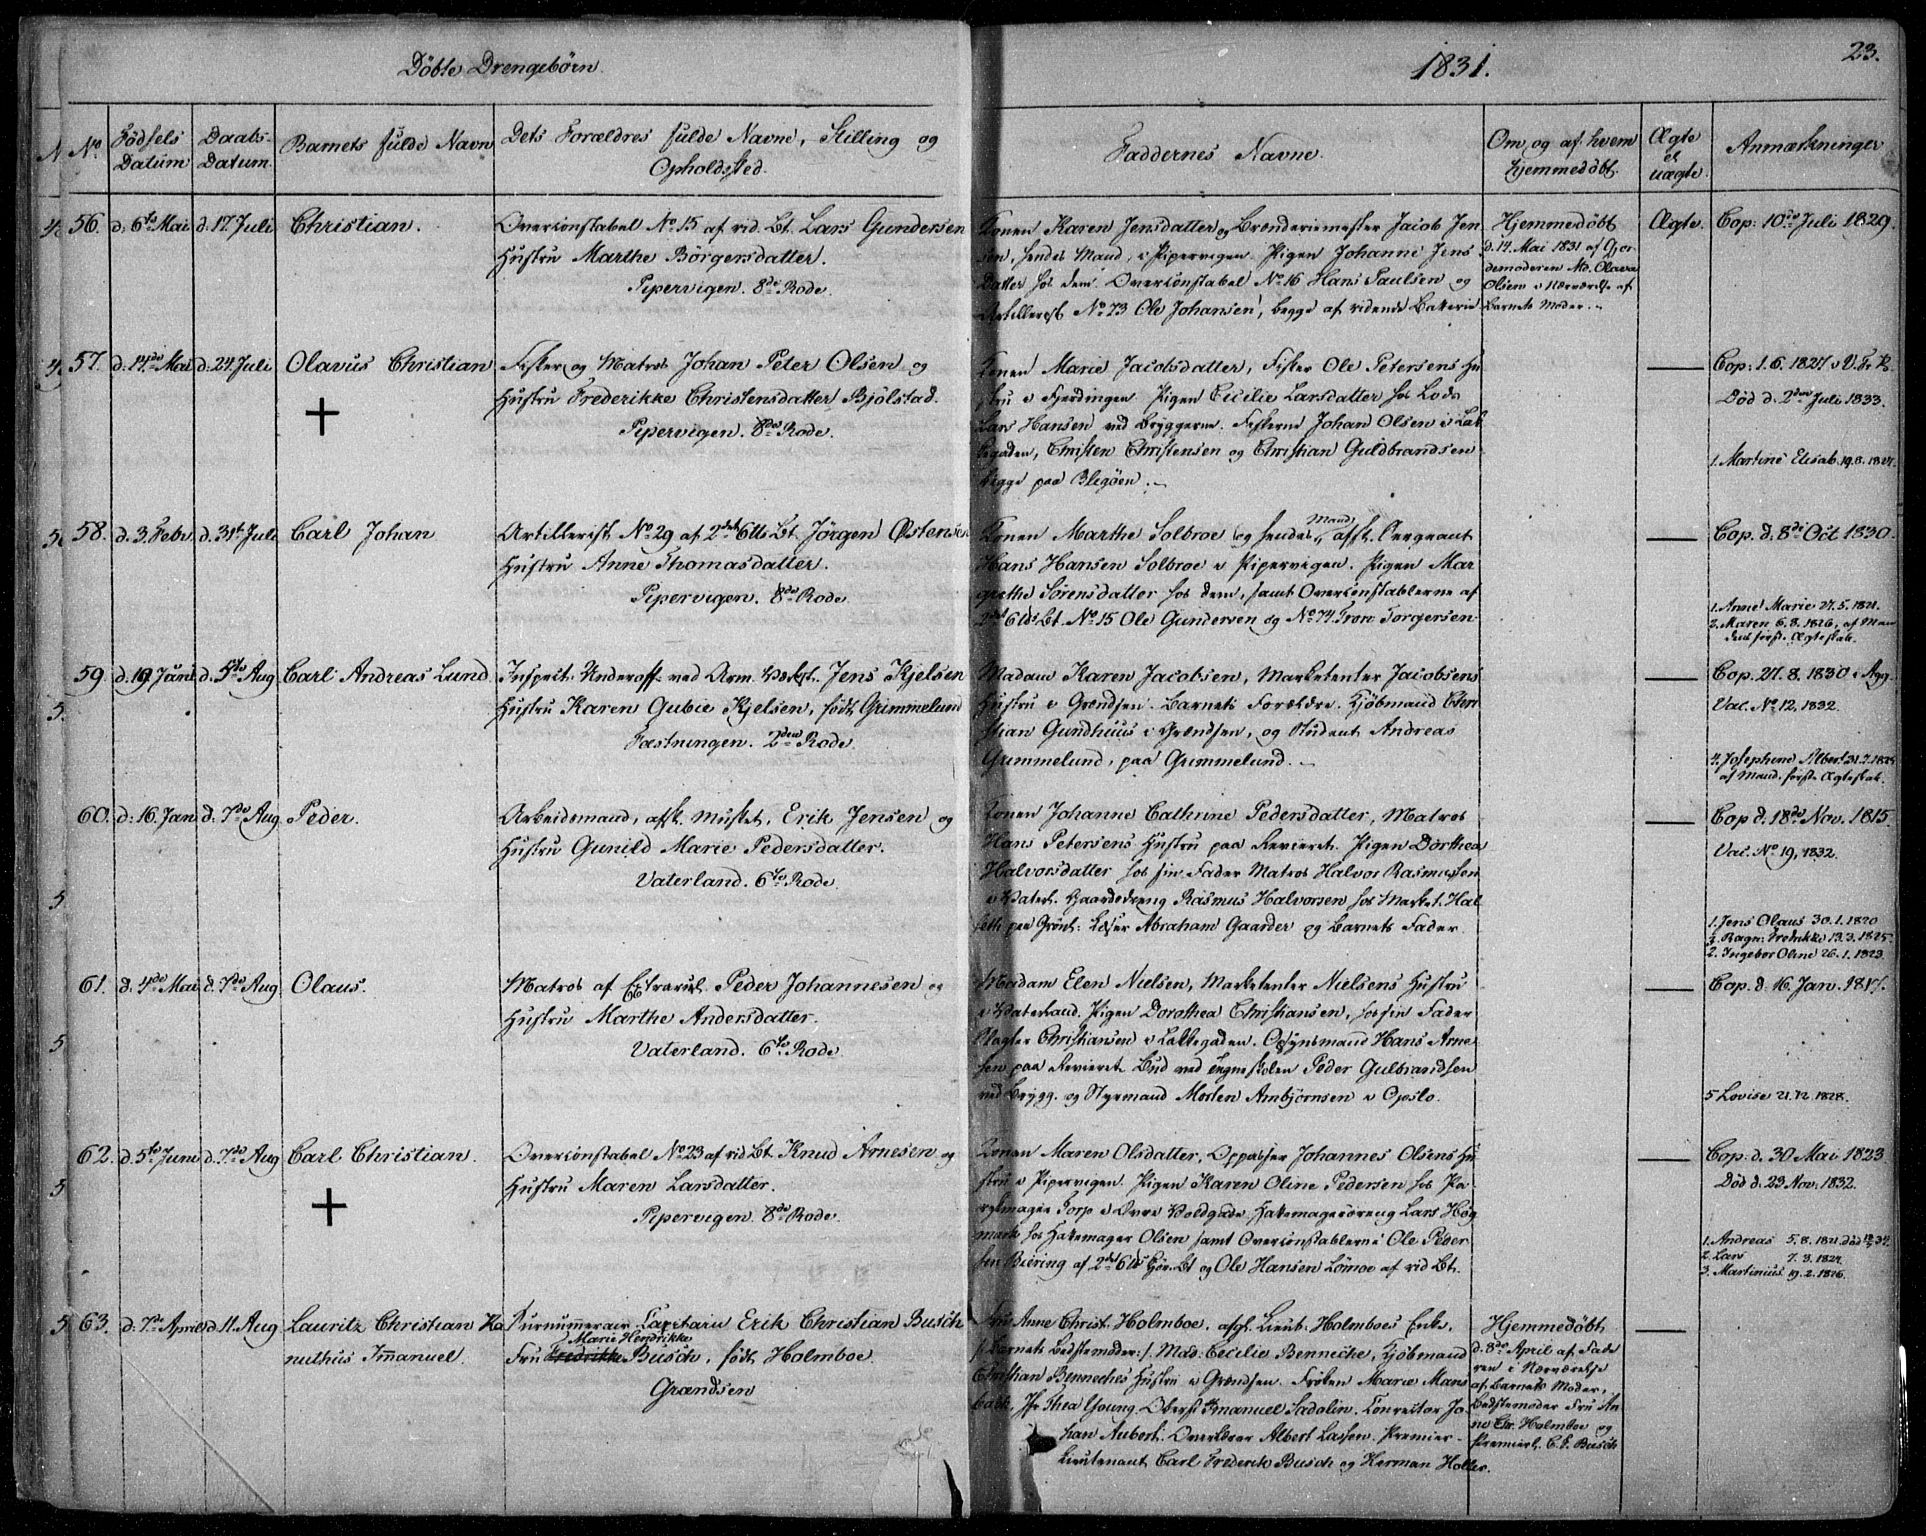 Döbte Drengebørn.
1831.
23.
No.
Fødsels Datum
Daabs-Datum.
Barnets fulde Navn
Dets Forældres fulde Navne, Stilling og Opholdsted.
Faddernes Navne.
Om og af hvem hjemmedöbt.
Ægte el uægte.
Anmærkninger
56. d. 6te Mai d. 17. Juli Christian.
Overconstabel No. 15 af rid. Bt. Lars Gundersen
Hustru Marthe Börgersdatter.
Pipervigen. 8de Rode.
Konen Karen Jensdatter og Brönderiemester Jacob Jen
sen, hendes Mand, i Pipervigen. Pigen Johanne Jens
datter hos dem. Overconstabel No. 16 Hans Paulsen og
Artillerist No. 73 Ole Johansen, begge af ridende Batterie
Hjemmedöbt
d. 14. Mai 1831 af Gjor
demoderen Md. Olava
Olsen i Nærværelse af
Barnets Moder.
Ægte.
Cop: 10de Juli 1829.
57. d. 14de Mai d. 24. Juli Olavus Christian
+
Fisker og Matros Johan Peter Olsen og
Hustru Frederikke Christensdatter Bjölstad.
Pipervigen. 8de Rode.
Konen Marie Jacobsdatter, Fisker Ole Petersens Hu
stru i Fjerdingen. Pigen Cecilie Larsdatter hos Lods
Lars Hansen ved Bryggerne. Fiskerne Johan Olsen i Lak
kegaden, Christen Christensen og Christian Guldbrandsen
begge paa Blegöen.
Cop: 1. 6. 1827 i V. Fr. K.
Död d. 2den Juli 1833.
1. Martine Elisab. 19.8.1827.
58. d. 3. Febr. d. 31te Juli Carl Johan
Artillerist No. 29 af 2det 6lb Bt. Jörgen Østensen
Hustru Anne Thomasdatter.
Pipervigen. 8de Rode
Konen Marthe Solbroe og hendes Mand, afsk. Sergeant
Hans Hansen Solbroe i Pipervigen. Pigen Mar
grethe Sörensdatter hos dem, samt Overconstablerne af
2det 6lds Bt. No. 15 Ole Gundersen og No. 74 Tron Torgersen
Cop. d. 8de Oct 1830.
1. Anne Marie 27.5.1821.
2. Maren 6.8.1826, af Man
dens første Ægteskab.
59 d. 19 Juni d. 5te Aug Carl Andreas Lund
Inspect. Underoff. ved Arm. Værkst. Jens Kjelsen
Hustru Karen Gubie Kjelsen, född Grimmelund
Fæstningen. 2den Rode
Madam Karen Jacobsen, Marketenter Jacobsens
Hustru i Grændsen. Barnets Forældre. Kjöbmand Chri
stian Gundhuus i Grændsen, og Student Andreas
Grimmelund, paa Grimmelund.
Cop. 27. 8. 1830 i Agg.
Vac. No. 12, 1832.
4. Josephine Albert. 31.7.1825
af Mand. første Ægteskab.
60. d: 16. Jan d. 7de Aug Peder.
Arbeidsmand, afsk. Musket. Erik Jensen og
Hustru Gunild Marie Pedersdatter.
Vaterland. 6te Rode
Konen Johanne Cathrine Pedersdatter, Matros
Hans Petersens Hustru paa Revieret. Pigen Dorthea
Halvorsdatter hos sin Fader Matros Halvor Rasmussen
i Vaterl. Gaardsdreng Rasmus Halvorsen hos Market. Hal
seth paa Grönl. Löser Abraham Gaarder og Barnets Fader
Cop d. 18de Nov. 1815.
Vac. No 19, 1832.
1. Jens Olaus 30.1.1820
3. Ragn: Fredrikke 13.3.1825.
2. Ingebor Oline 26.1.1823.
61. d. 4de Mai d. 7de Aug Olaus.
Matros af Extrarul. Peder Johannesen og
Hustru Marthe Andersdatter.
Vaterland. 6te Rode
Madam Elen Nielsen, Marketenter Nielsens Hustru
i Vaterland. Pigen Dorothea Christiansen, hos sin Fader
Vagter Christiansen i Lakkegaden. Opsynsmand Hans Arne
sen paa Revieret. Bud ved Tegneskolen Peder Gulbrandsen
ved Brygg. og Styrmand Morten Ambjörnsen i Opslo.
Cop. d. 16 Jan. 1817.
5 Lovise 21.12.1828.
62. d. 5te Juni d. 7de Aug Carl Christian.
+
Overconstabel No. 23 af rid Bt. Knud Arnesen og
Hustru Maren Larsdatter.
Pipervigen. 8de Rode.
Konen Maren Olsdatter, Oppasser Johannes Olsens Hu
stru i Pipervigen. Pigen Karen Oline Pedersen hos Pa
rykmager Torp i Övre Voldgade. Hattemagerdreng Lars Høg
mark hos Hattemager Olsen samt Overconstablerne Ole Peder
sen Biering af 2det 6lbs Bt og Ole Hansen Lömoe af rid Bt.
Cop. d. 30 Mai 1823
Död d. 23 Nov. 1832.
1. Andreas 5.8.1821
2. Lars 7.3.1824.
3. Martinius 19.2.1826.
63. d. 7de April d. 11. Aug Lauritz Christian Ka
nuthus Immanuel.
Surnummerair Capitain Erik Christian Busch
Marie Hendrikke
Fru Fredrikke Busch, född Holmboe.
Grændsen
Fru Anne Christ. Holmboe, afg. Lieut. Holmboes Enke,
/: Barnets Bedstemoder :/. Mad: Cecilie Bennecke, Kjöbmand
Christian Benneches Hustru i Grændsen. Fröken Marie Mans
bach, Jfr Thea Young. Oberst Emanuel Sadolin. Conrector Jo
han Aubert. Overlærer Albert Lassen. Premier-
Lieutenant Carl Frederik Busch og Herman Holter.
Hjemmedöbt
d. 8de April af Fade
ren i Nærværelse
af Barnets Moder,
Bedstemoder Fru An
ne Chr. Holmboe og
Premierl. C. F. Busch